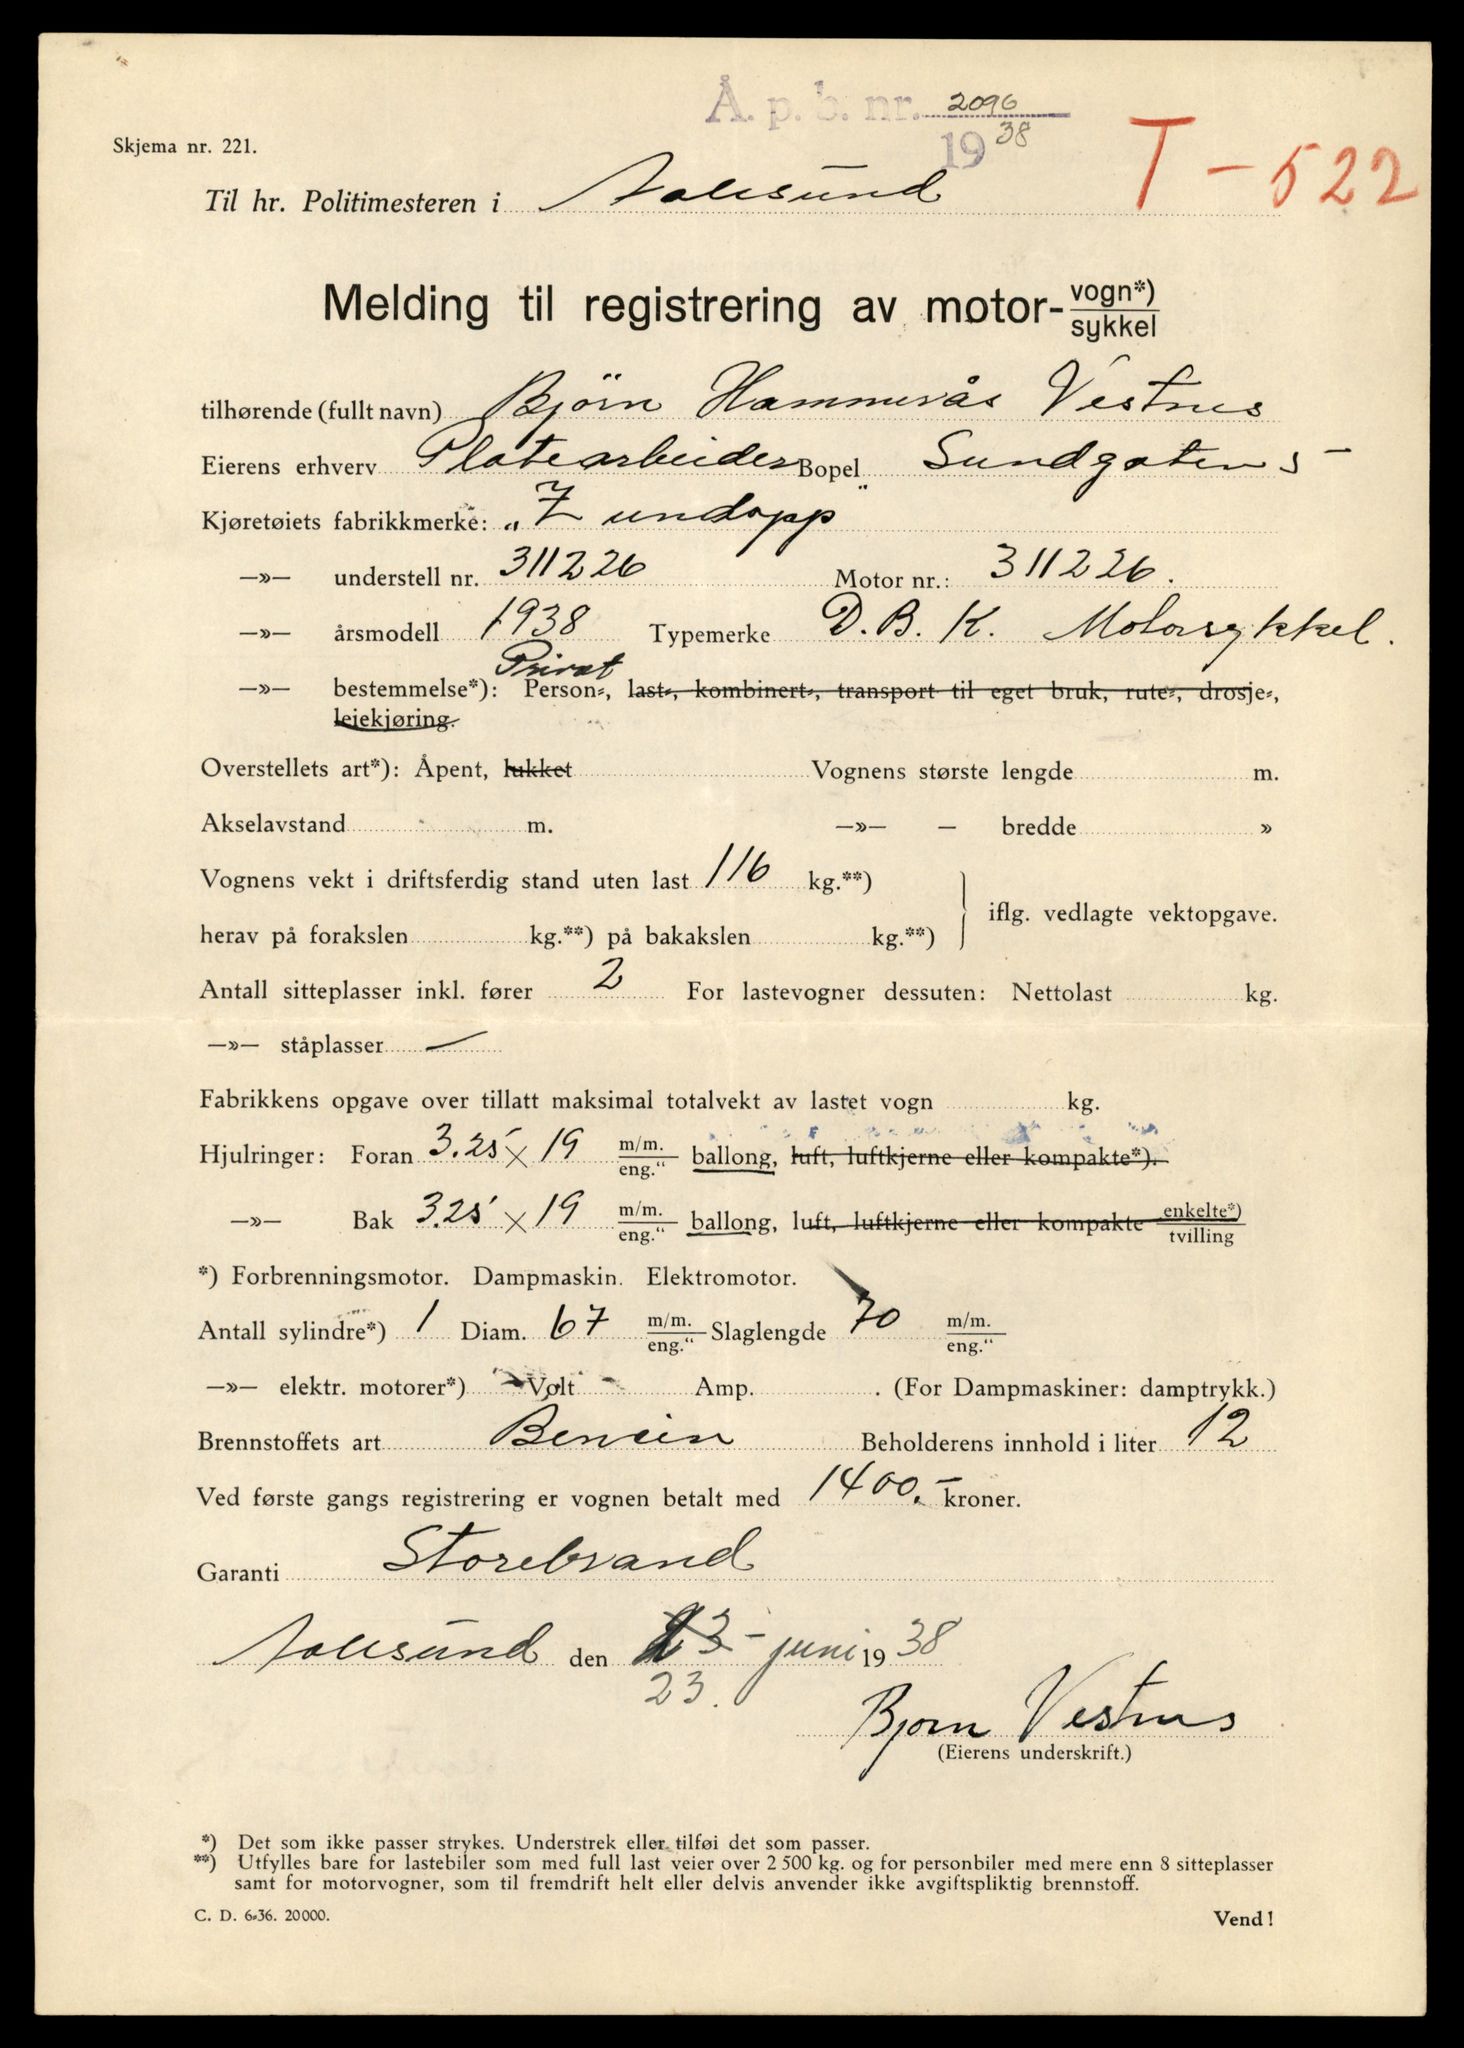 Å. p. b. nr. 2096
1938
T-522
Skjema nr. 221.
Til hr. Politimesteren i Aalesund
Melding til registrering av motor-vogn*)/sykkel
tilhørende (fullt navn) Björn Hammerås Vestnes
Eierens erhverv Platearbeider Bopel Sundgaten 5
Kjøretøiets fabrikkmerke: „Zundapp"
—»— understell nr. 311226 Motor nr.: 311226.
—»— årsmodell 1938 Typemerke D.B.K. Motorsykkel.
Privat
—»— bestemmelse*): Person-, last-, kombinert-, transport til eget bruk, rute-, drosje-,
leiekjøring.
Overstellets art*): Åpent, lukket Vognens største lengde m.
Akselavstand m. —»— — bredde »
Vognens vekt i driftsferdig stand uten last 116 kg.**)
iflg. vedlagte vektopgave.
herav på forakslen kg.**) på bakakslen kg.**)
Antall sitteplasser inkl. fører 2 For lastevogner dessuten: Nettolast kg.
—»— ståplasser —
Fabrikkens opgave over tillatt maksimal totalvekt av lastet vogn kg.
Hjulringer: Foran 3.25 × 19 m/m./eng." ballong, luft, luftkjerne eller kompakte*).
—»— Bak 3.25 × 19 m/m./eng." ballong, luft, luftkjerne eller kompakte enkelte*)/tvilling
*) Forbrenningsmotor. Dampmaskin. Elektromotor.
Antall sylindre*) 1 Diam. 67 m/m./eng." Slaglengde 70 m/m./eng."
—»— elektr. motorer*) Volt Amp. . (For Dampmaskiner: damptrykk.)
Brennstoffets art Bensin Beholderens innhold i liter 12
Ved første gangs registrering er vognen betalt med 1400.- kroner.
Garanti Storebrand
Aalesund den 23- juni 1938
23.
Bjørn Vestnes
(Eierens underskrift.)
*) Det som ikke passer strykes. Understrek eller tilføi det som passer.
**) Utfylles bare for lastebiler som med full last veier over 2 500 kg. og for personbiler med mere enn 8 sitteplasser
samt for motorvogner, som til fremdrift helt eller delvis anvender ikke avgiftspliktig brennstoff.
C. D. 6-36. 20000.
Vend!